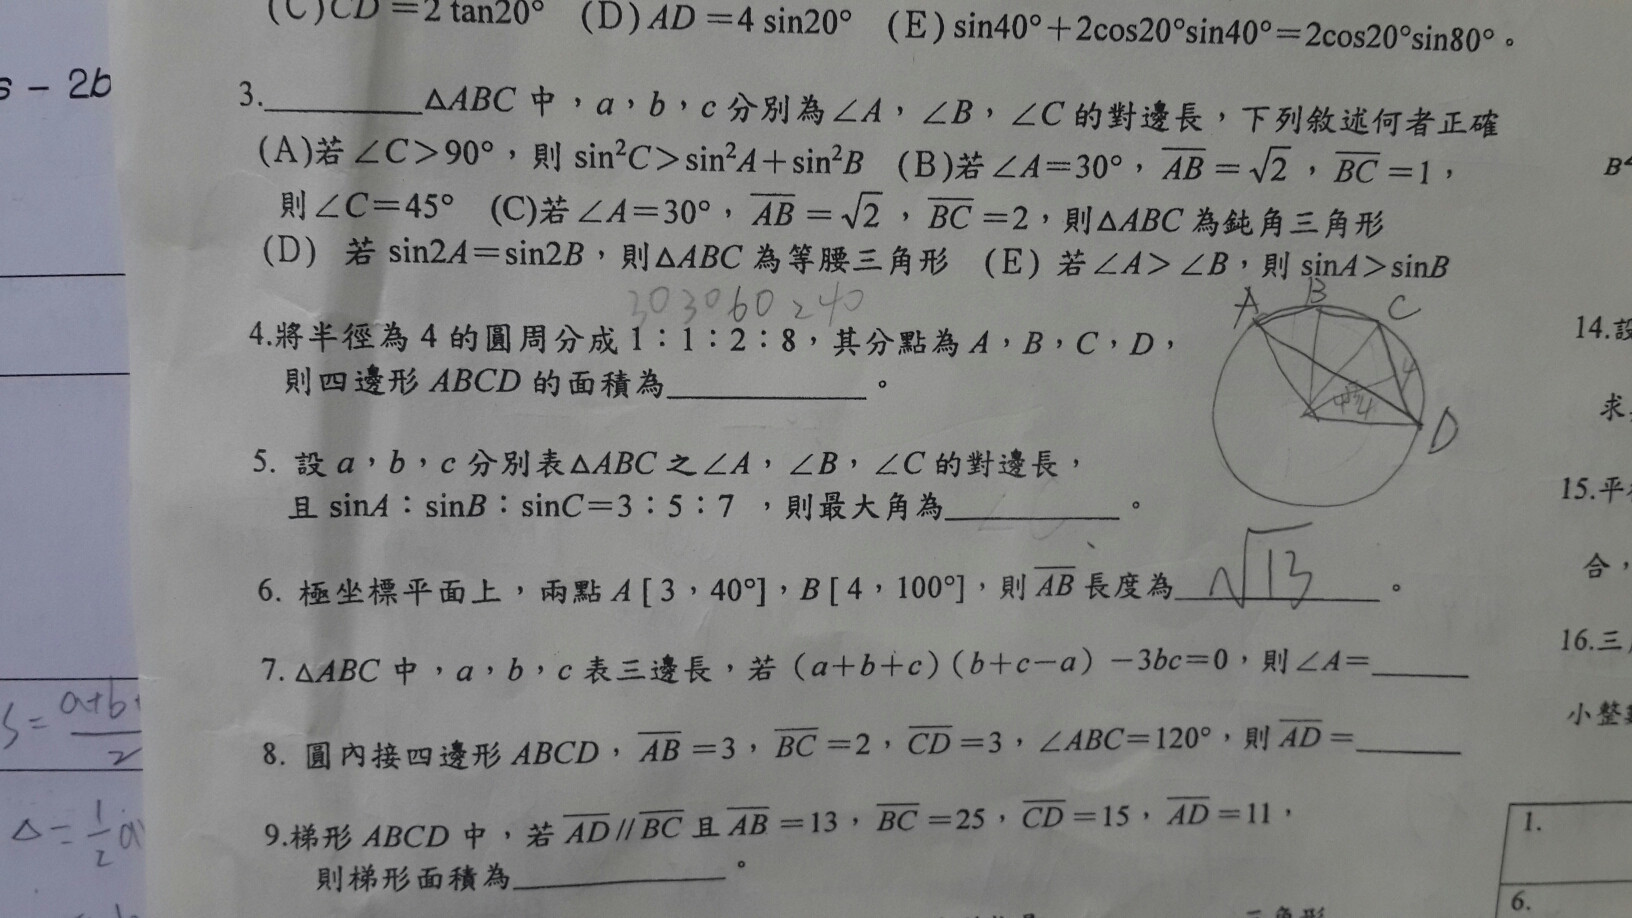 (C) CD = 2 tan20° (D) AD = 4 sin20° (E) sin40° + 2cos20°sin40° = 2cos20°sin80°。
s - 2b
3.________△ABC 中，a，b，c 分別為∠A，∠B，∠C 的對邊長，下列敘述何者正確
(A)若∠C>90°，則 sin²C>sin²A+sin²B (B)若∠A=30°，AB=√2，BC=1，
則∠C=45° (C)若∠A=30°，AB=√2，BC=2，則△ABC 為鈍角三角形
(D) 若 sin2A=sin2B，則△ABC 為等腰三角形 (E) 若∠A>∠B，則 sinA>sinB
30 30 60 240
A B C
4.將半徑為 4 的圓周分成 1：1：2：8，其分點為 A，B，C，D，
則四邊形 ABCD 的面積為________。
4
4 4
D
5. 設 a，b，c 分別表△ABC 之∠A，∠B，∠C 的對邊長，
且 sinA：sinB：sinC=3：5：7 ，則最大角為________。
6. 極坐標平面上，兩點 A [ 3，40°]，B [ 4，100°]，則 AB 長度為 √13 。
7. △ABC 中，a，b，c 表三邊長，若（a+b+c）（b+c−a）−3bc=0，則∠A=______
8. 圓內接四邊形 ABCD，AB=3，BC=2，CD=3，∠ABC=120°，則 AD=______
9.梯形 ABCD 中，若 AD//BC 且 AB=13，BC=25，CD=15，AD=11，
則梯形面積為________。
14.設
求
15.平
合，
16.三
小整
1.
6.
三角形